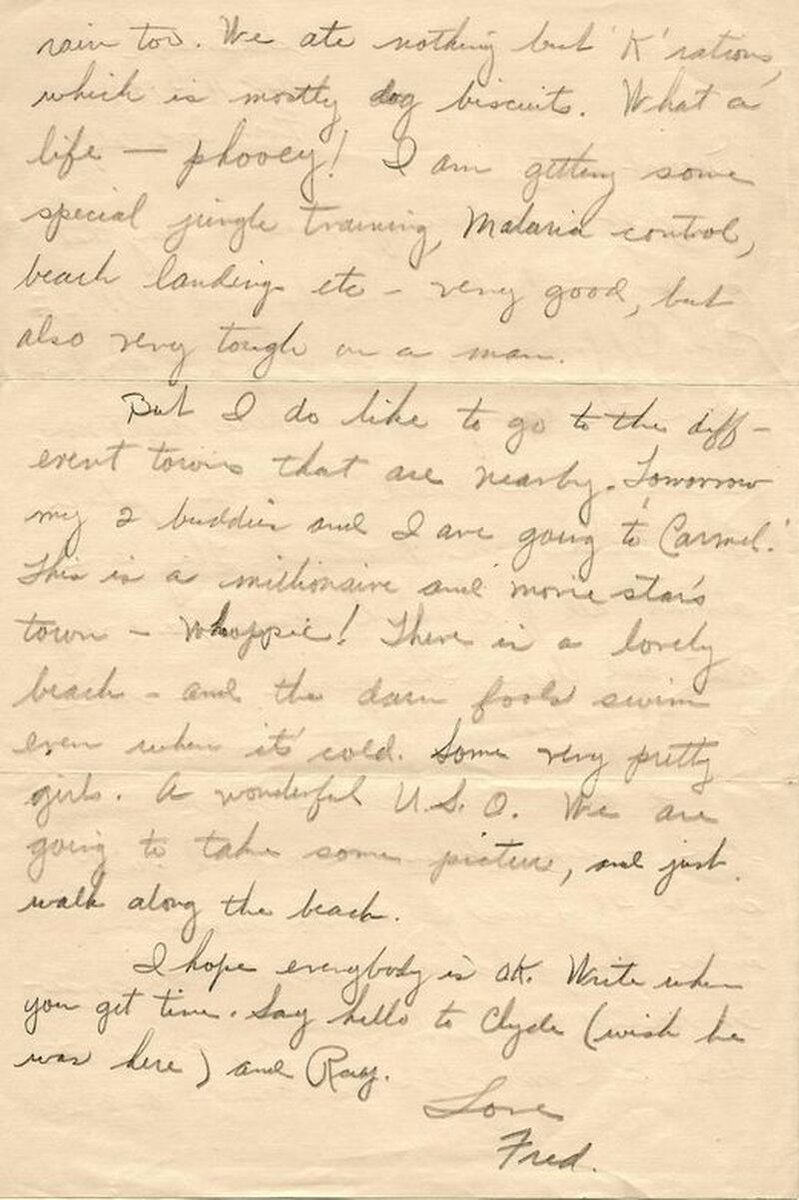 rain too. We ate nothing but 'K' rations,
which is mostly dog biscuits. What a
life — phooey! I am getting some
special jungle training, Malaria control,
beach landings etc - very good, but
also very tough on a man.
But I do like to go to the diff-
erent towns that are nearby. Tomorrow
my 2 buddies and I are going to 'Carmel.'
This is a millionaire and movie stars
town - Whoppie! There is a lovely
beach - and the darn fools swim
even when it's cold. Some very pretty
girls. A wonderful U.S.O. We are
going to take some picture, and just
walk along the beach.
I hope everybody is OK. Write when
you get time. Say hello to Clyde (wish he
was here) and Ray.
Love
Fred.